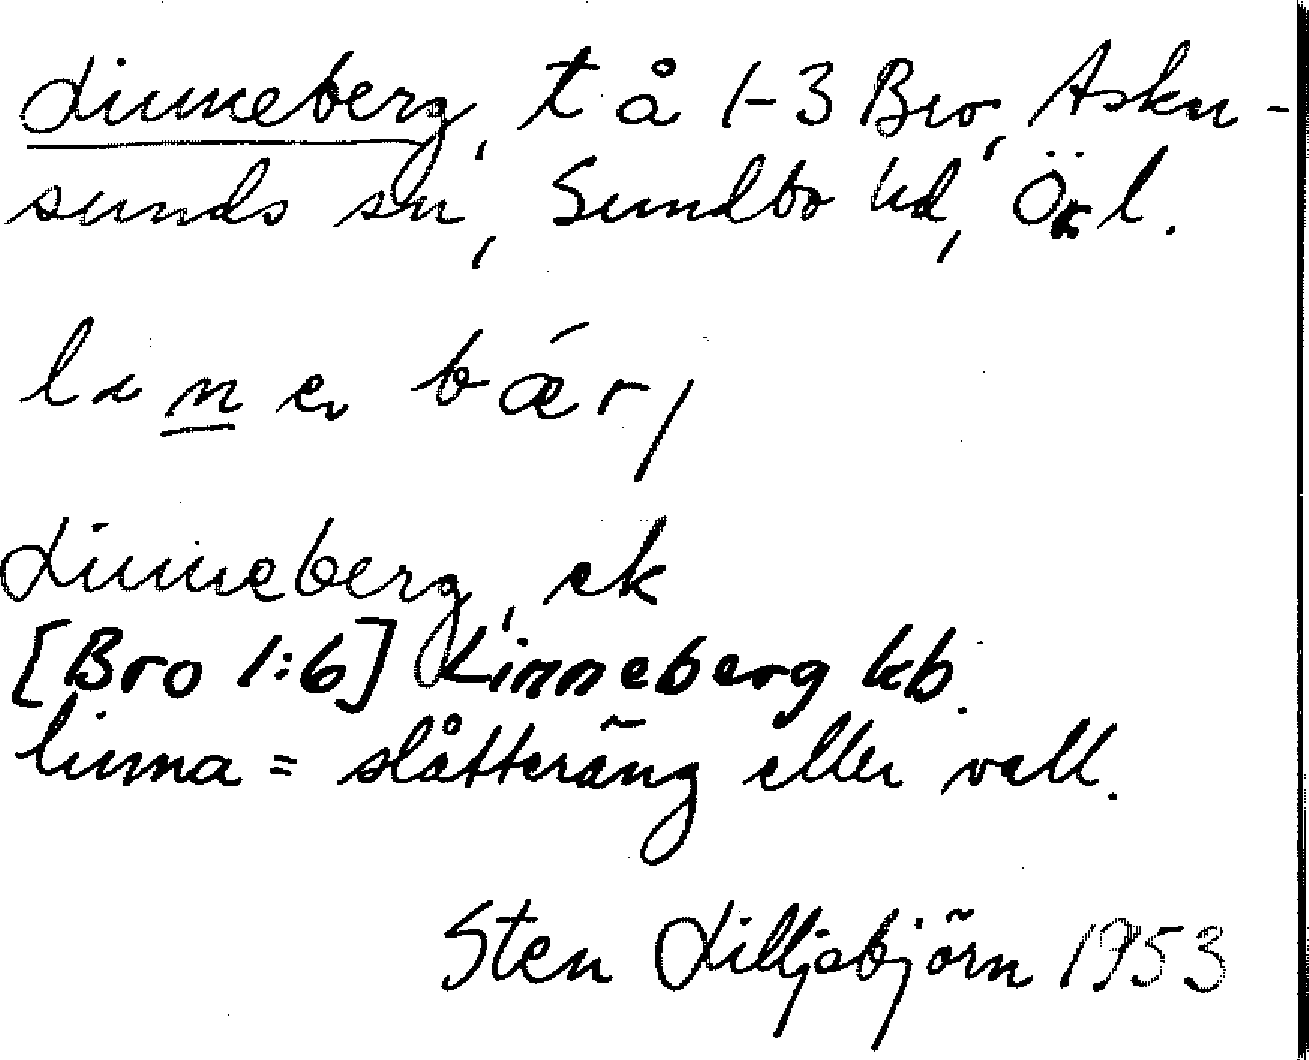 Linneberg, t å 1-3 Bro, Asker-
sunds sn, Sundbo hd, Ökl.
Linneberg, ek
[Bro 1:6] Linneberg kb.
linna = slåtteräng eller vall.
Sten Lilljebjörn 1953